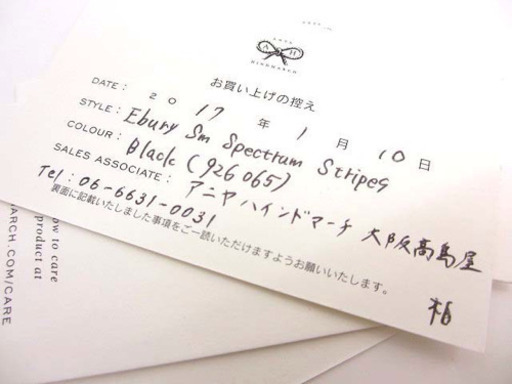 ANYA
A H
HINDMARCH
お買い上げの控え
DATE: 2017 年 1 月 10 日
STYLE: Ebury Sm Spectrum Stripes
COLOUR: Black (926065)
SALES ASSOCIATE: アニヤハインドマーチ 大阪高島屋
Tel: 06-6631-0031
裏面に記載いたしました事項をご一読いただけますようお願いいたします。
ow to care
product at
ARCH.COM/CARE